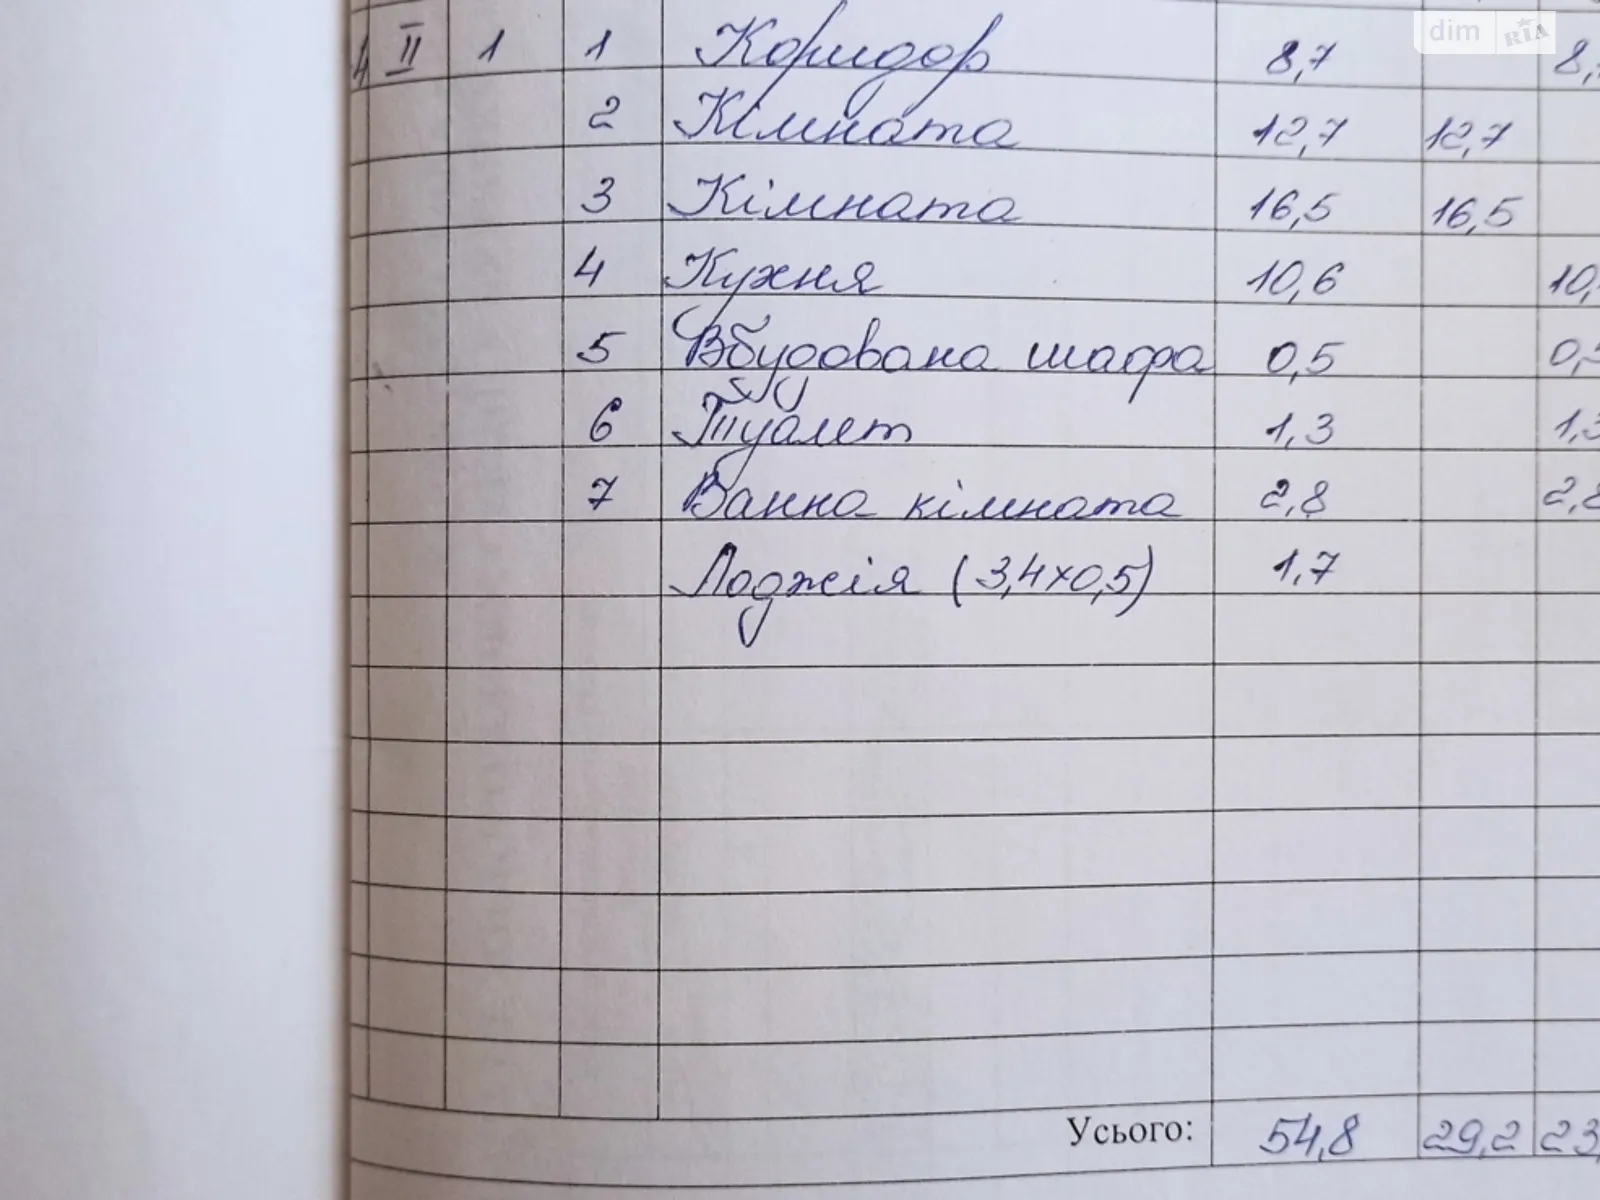 dim RIA
4 II 1 1 Коридор 8,7 8,
2 Кімната 12,7 12,7
3 Кімната 16,5 16,5
4 Кухня 10,6 10,
5 Вбудована шафа 0,5 0,5
6 Туалет 1,3 1,3
7 Ванна кімната 2,8 2,8
Лоджія (3,4×0,5) 1,7
Усього: 54,8 29,2 23,